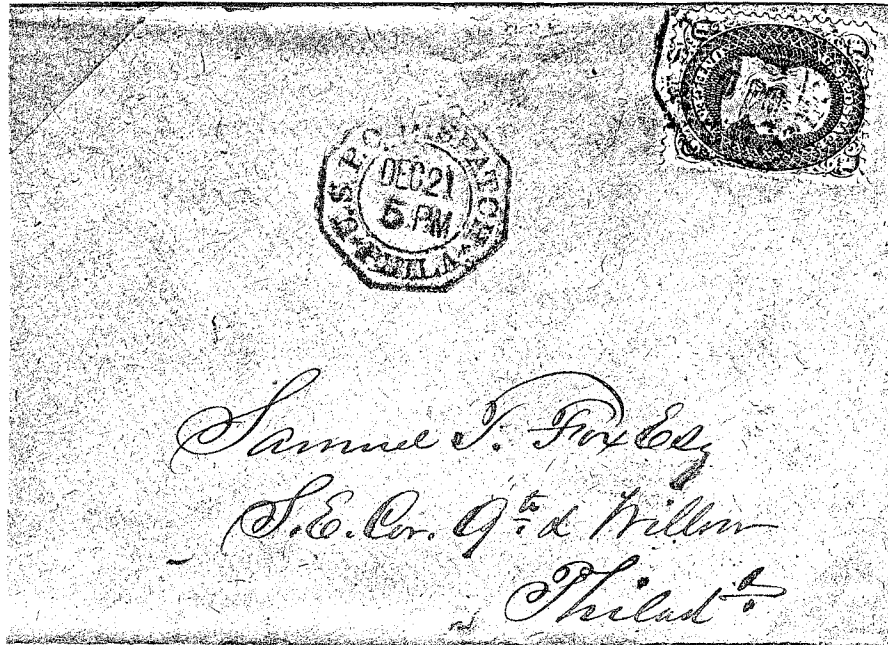 U.S. P.O. DISPATCH
DEC 21
5 PM
PHILA
Samuel T. Fox Esq
S.E. Cor. 9th & Willow
Philada